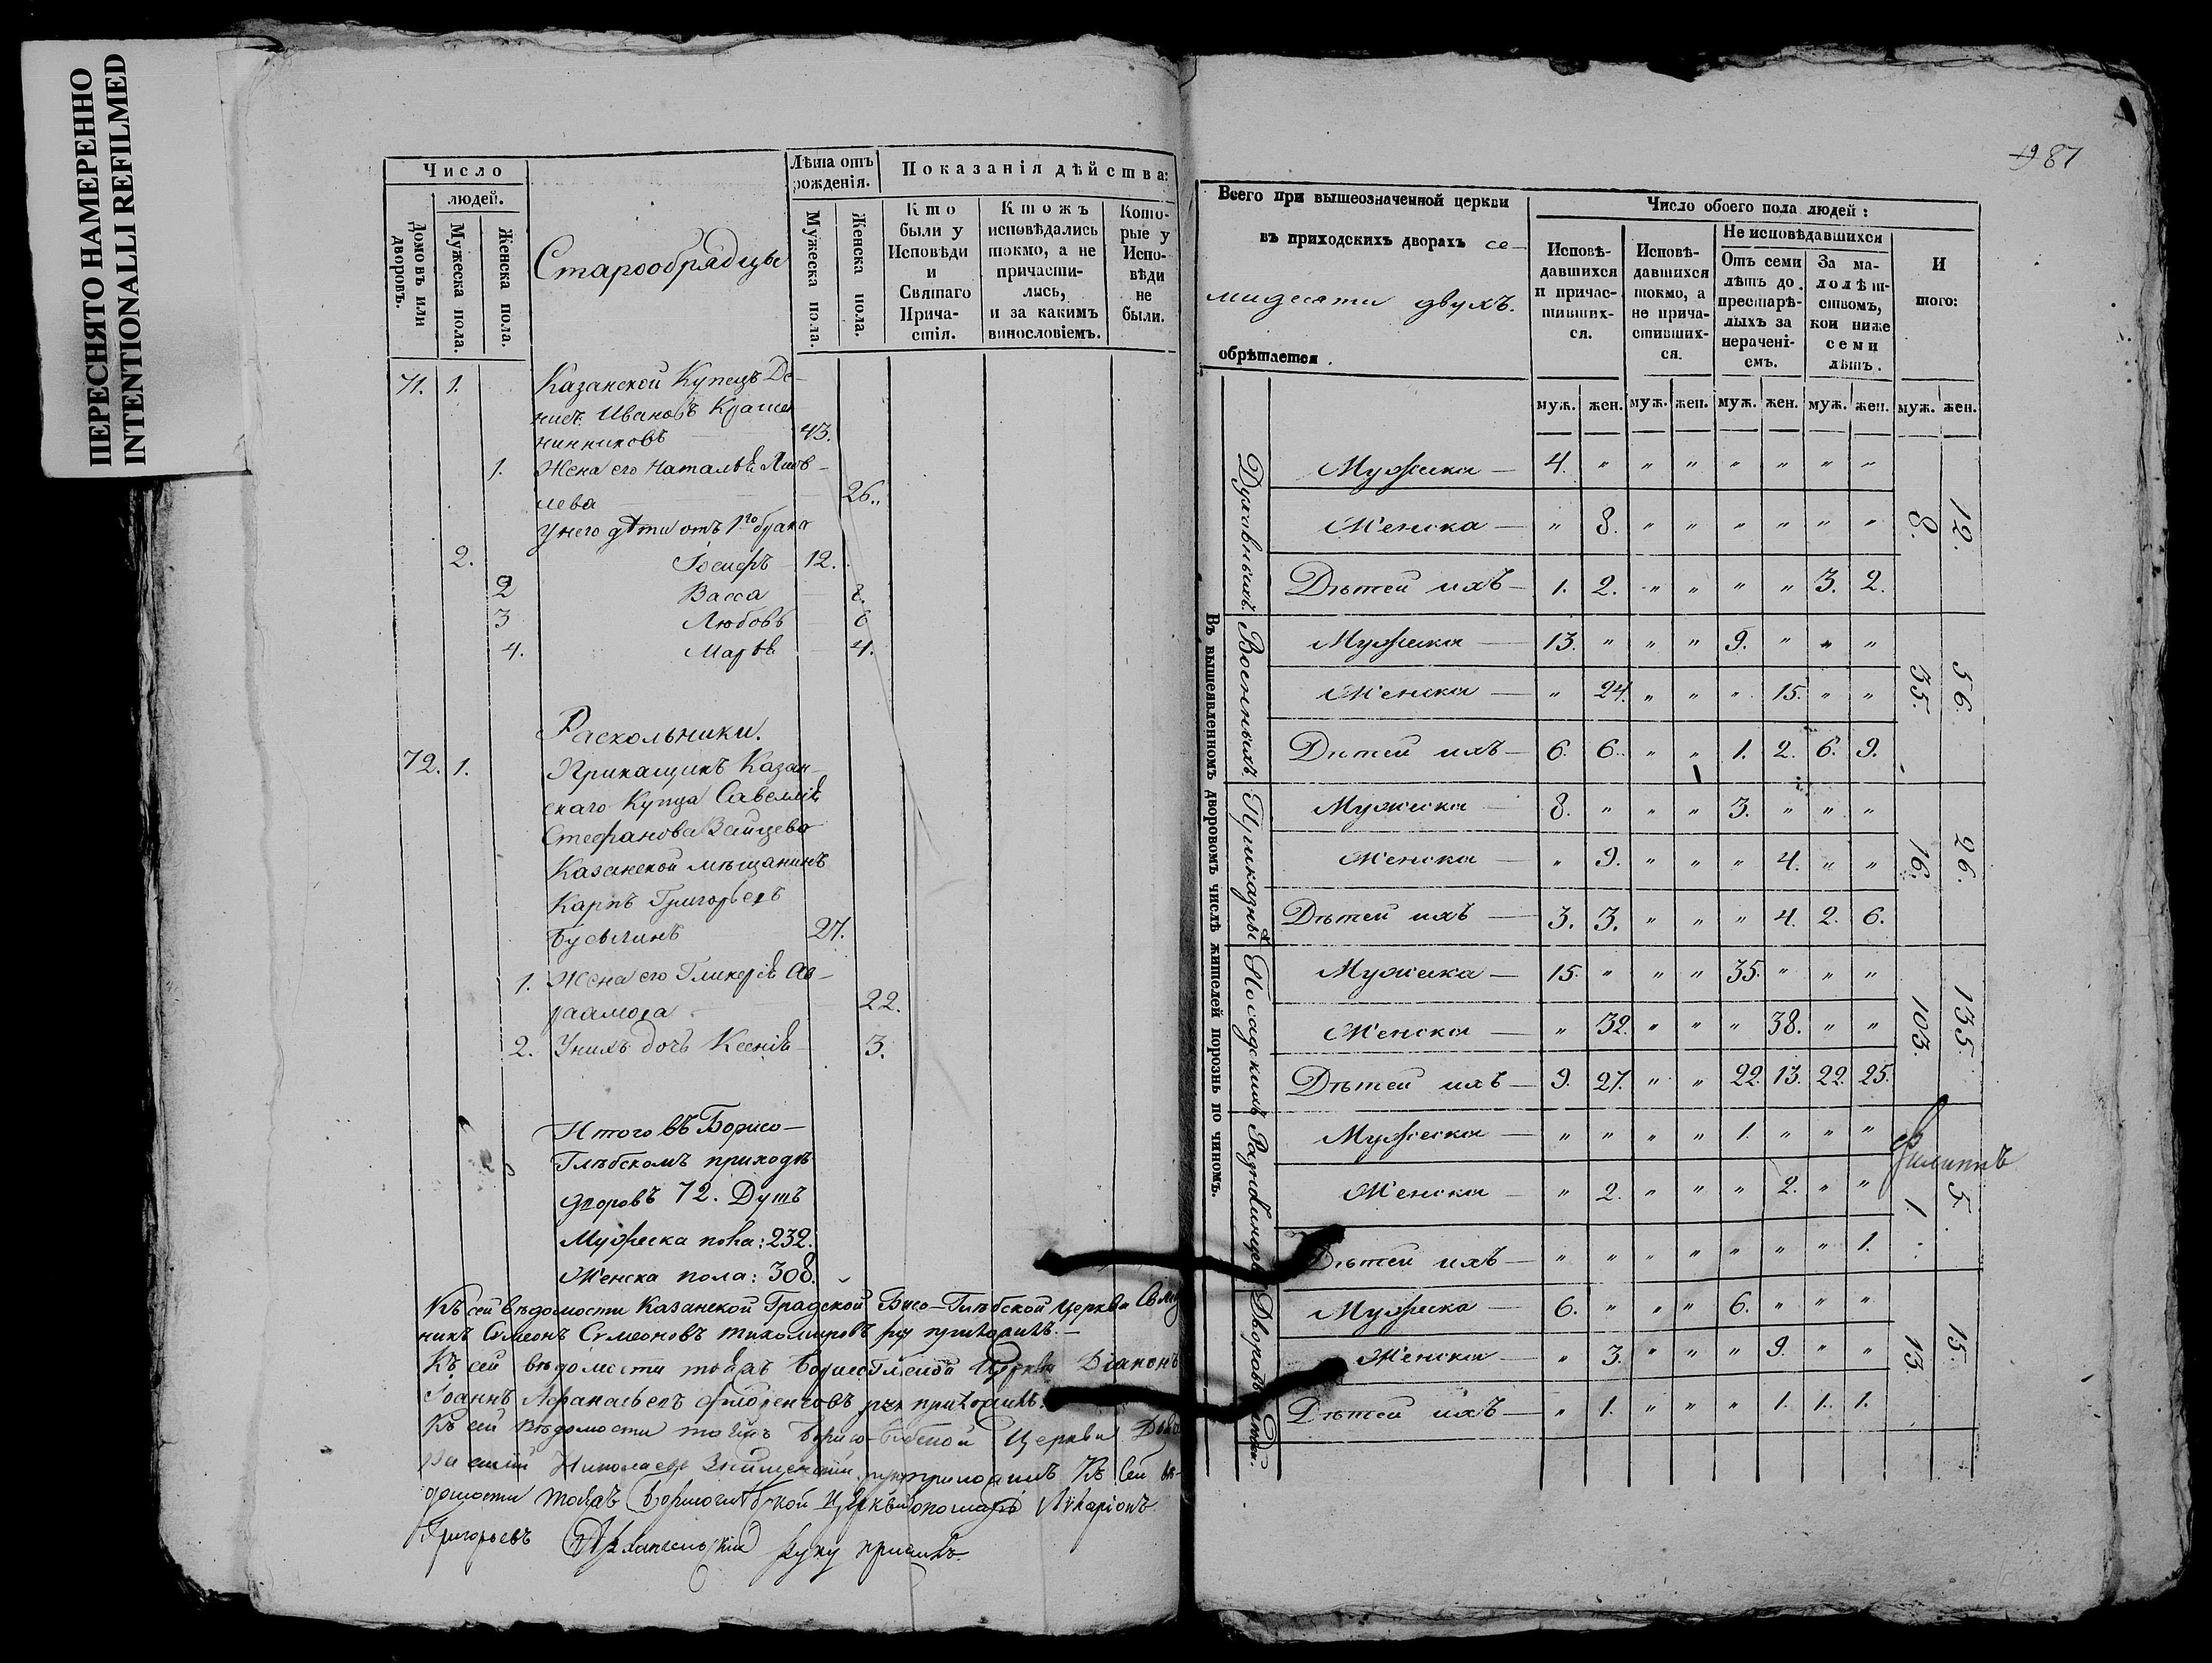 ПЕРЕСНЯТО НАМЕРЕННО
INTENTIONALLI REFILMED
Число
людей.
Домовъ или дворовъ.
Мужеска пола.
Женска пола.
Старообрядцы
Лѣта отъ рожденія.
Мужеска пола.
Женска пола.
Показанія дѣйства:
Кто были у Исповѣди и Святаго Прича-стія.
Ктожъ исповѣдались токмо, а не причасти-лись, и за какимъ винословіемъ.
Кото-рые у Испо-вѣди не были.
71. 1. Казанской Купецъ Де-
нисъ Ивановъ Краше
нинниковъ 43.
1. Жена его Наталья
лева 26.
У него дѣти отъ 1го брака
2. Іосифъ 12.
2 Васса 8.
3 Любовь 6
4. Марья 4.
Раскольники.
72. 1. Прикащикъ Казан-
скаго Купца Савелия
Стефанова Зайцева
Казанской мѣщанинъ
Карпъ Григорьевъ
27.
1. Жена его Гликерія Ав-
раамова 22.
2. У нихъ дочь Ксенія 3.
Итого въ Борисо-
Глѣбскомъ приходѣ
дворовъ 72. Душъ
Мужеска пола: 232.
Женска пола: 308.
Къ сей вѣдомости Казанской Градской Глѣбской церкви
никъ Симеонъ Симеоновъ Тихомировъ руку приложилъ.
Къ сей вѣдомости тояжъ Борисоглебской Церкви Діаконъ
Іоаннъ Афанасьевъ руку приложилъ.
Къ сей вѣдомости тояжъ Борисо-Глебской Церкви
Николаевъ руку приложилъ Къ сей вѣ-
домости тояжъ Борисоглѣбской Церкви пономарь Иларіонъ
Григорьевъ Архангельскій руку приложилъ
87
Всего при вышеозначенной церкви
въ приходскихъ дворахъ се-
мидесяти двухъ.
обрѣтается.
Число обоего пола людей:
Исповѣ-давшихся и причас-тивших-ся.
Исповѣ-давшихся токмо, а не прича-стивших-ся.
Не исповѣдавшихся
Отъ семи лѣтъ до престарѣ-лыхъ за нерачені-емъ.
За ма-лолѣт-ствомъ, кои ниже семи лѣтъ.
И того:
муж. жен. муж. жен. муж. жен. муж. жен. муж. жен.
Въ вышеявленномъ дворовомъ числѣ жителей порознь по чиномъ.
Духовныхъ.
Мужеска 4. " " " " " " "
Женска " 8. " " " " " "
Дѣтей ихъ 1. 2. " " " " 3. 2.
8. 12.
Военныхъ
Мужеска 13. " " " 9. " " "
Женска " 24. " " " 15. " "
Дѣтей ихъ 6. 6. " " 1. 2. 6. 9.
35. 56.
Приказныхъ
Мужеска 8. " " " 3. " " "
Женска " 9. " " " 4. " "
Дѣтей ихъ 3. 3. " " " 4. 2. 6.
16. 26.
Посадскихъ
Мужеска 15. " " " 35. " " "
Женска " 32. " " " 38. " "
Дѣтей ихъ 9. 27. " " 22. 13. 22. 25.
103. 135.
Разночинцевъ
Мужеска " " " " 1. " " "
Женска " 2. " " " 2. " "
Дѣтей ихъ " " " " " " " 1.
1. 5.
Филиппъ
Мужеска 6. " " " 6. " " "
Женска " 3. " " " 9. " "
Дѣтей ихъ " 1. " " " 1. 1. 1.
13. 15.